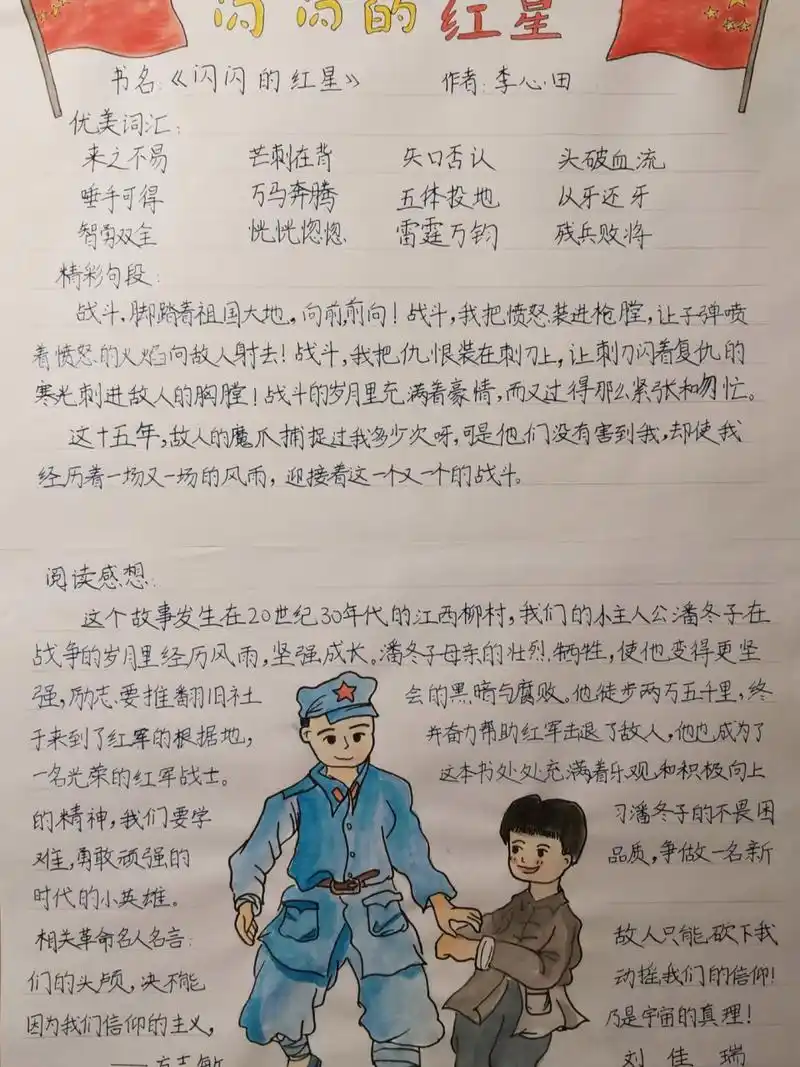 闪闪的红星
书名:《闪闪的红星》 作者:李心田
优美词汇:
来之不易 芒刺在背 矢口否认 头破血流
唾手可得 万马奔腾 五体投地 以牙还牙
智勇双全 恍恍惚惚 雷霆万钧 残兵败将
精彩句段:
战斗,脚踏着祖国大地,向前,前向!战斗,我把愤怒装进枪膛,让子弹喷
着愤怒的火焰向敌人射去!战斗,我把仇恨装在刺刀上,让刺刀闪着复仇的
寒光刺进敌人的胸膛!战斗的岁月里充满着豪情,而又过得那么紧张和匆忙。
这十五年,敌人的魔爪捕捉过我多少次呀,可是他们没有害到我,却使我
经历着一场又一场的风雨,迎接着这一个又一个的战斗。
阅读感想:
这个故事发生在20世纪30年代的江西柳村,我们的小主人公潘冬子在
战争的岁月里经历风雨,坚强成长。潘冬子母亲的壮烈牺牲,使他变得更坚
强,励志要推翻旧社会的黑暗与腐败。他徒步两万五千里,终
于来到了红军的根据地,并奋力帮助红军击退了敌人,他也成为了
一名光荣的红军战士。这本书处处充满着乐观和积极向上
的精神,我们要学习潘冬子的不畏困
难,勇敢顽强的品质,争做一名新
时代的小英雄。
相关革命名人名言:敌人只能砍下我
们的头颅,决不能动摇我们的信仰!
因为我们信仰的主义,乃是宇宙的真理!
——方志敏 刘佳瑞